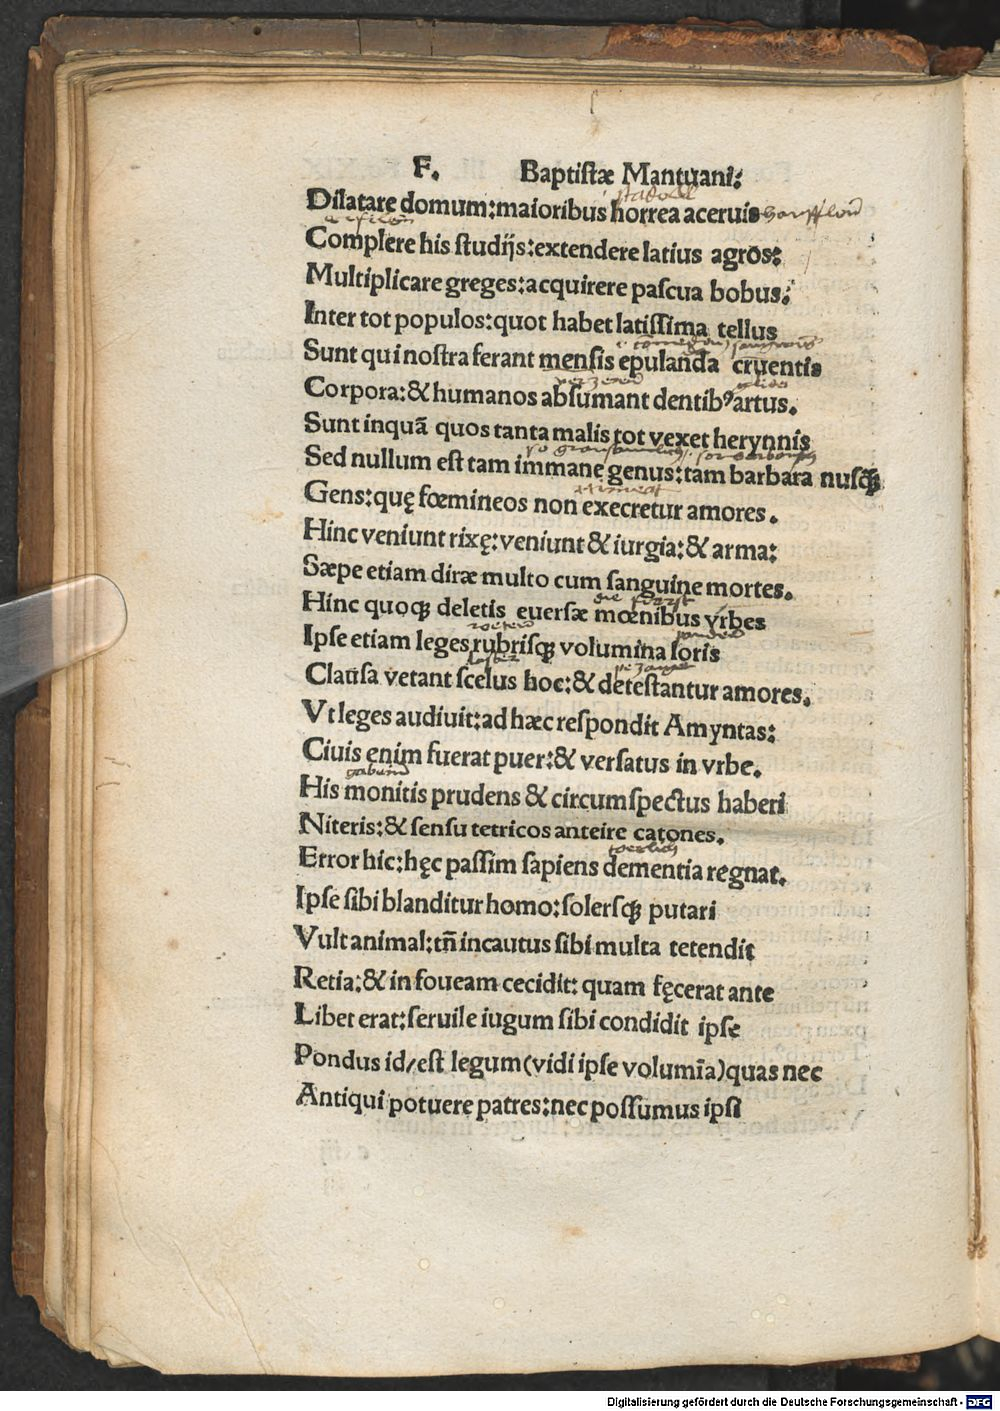 F. Baptistæ Mantuani:
Dilatare domum: maioribus horrea aceruis
Complere his studijs: extendere latius agros:
Multiplicare greges: acquirere pascua bobus:
Inter tot populos: quot habet latissima tellus
Sunt qui nostra ferant mensis epulanda cruentis
Corpora: & humanos absumant dentibꝰ artus.
Sunt inquã quos tanta malis tot vexet herynnis
Sed nullum est tam immane genus: tam barbara nusꝗ̃
Gens: quę fœmineos non execretur amores.
Hinc veniunt rixę: veniunt & iurgia: & arma:
Sæpe etiam diræ multo cum sanguine mortes.
Hinc quoqꝫ deletis euersæ mœnibus vrbes
Ipse etiam leges rubrisqꝫ volumina loris
Clausa vetant scelus hoc: & detestantur amores.
Vt leges audiuit: ad hæc respondit Amyntas:
Ciuis enim fuerat puer: & versatus in vrbe.
His monitis prudens & circumspectus haberi
Niteris: & sensu tetricos anteire catones.
Error hic: hęc passim sapiens dementia regnat.
Ipse sibi blanditur homo: solersqꝫ putari
Vult animal: tñ incautus sibi multa tetendit
Retia: & in foueam cecidit: quam fęcerat ante
Liber erat: seruile iugum sibi condidit ipse
Pondus id/est legum (vidi ipse volumīa) quas nec
Antiqui potuere patres: nec possumus ipsi
Digitalisierung gefördert durch die Deutsche Forschungsgemeinschaft - DFG